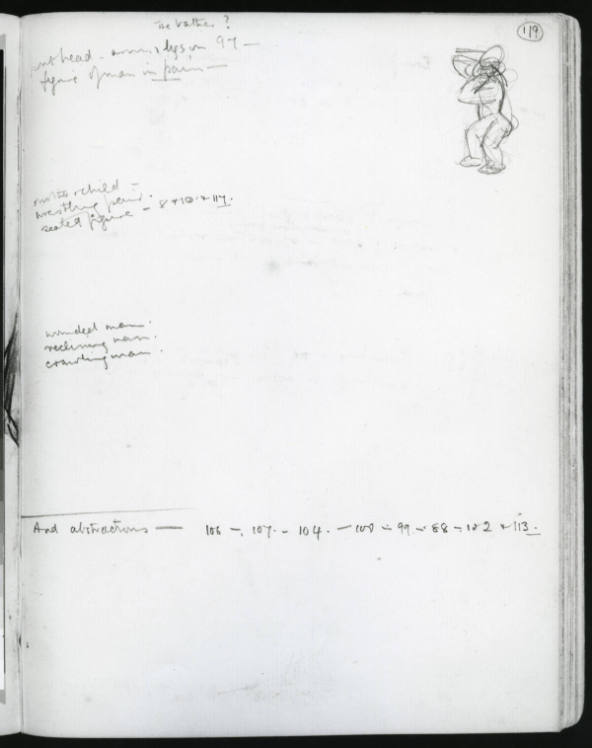 The bather?
119
head - arms & legs on 97 —
figure of man in pain —
mother & child —
wrestling pair.
seated figure — 8 + 10 + 117.
wounded man.
reclining man.
crawling man.
And abstractions — 106 —. 107. - 104. — 100 — 99 — 88 — 102 + 113.